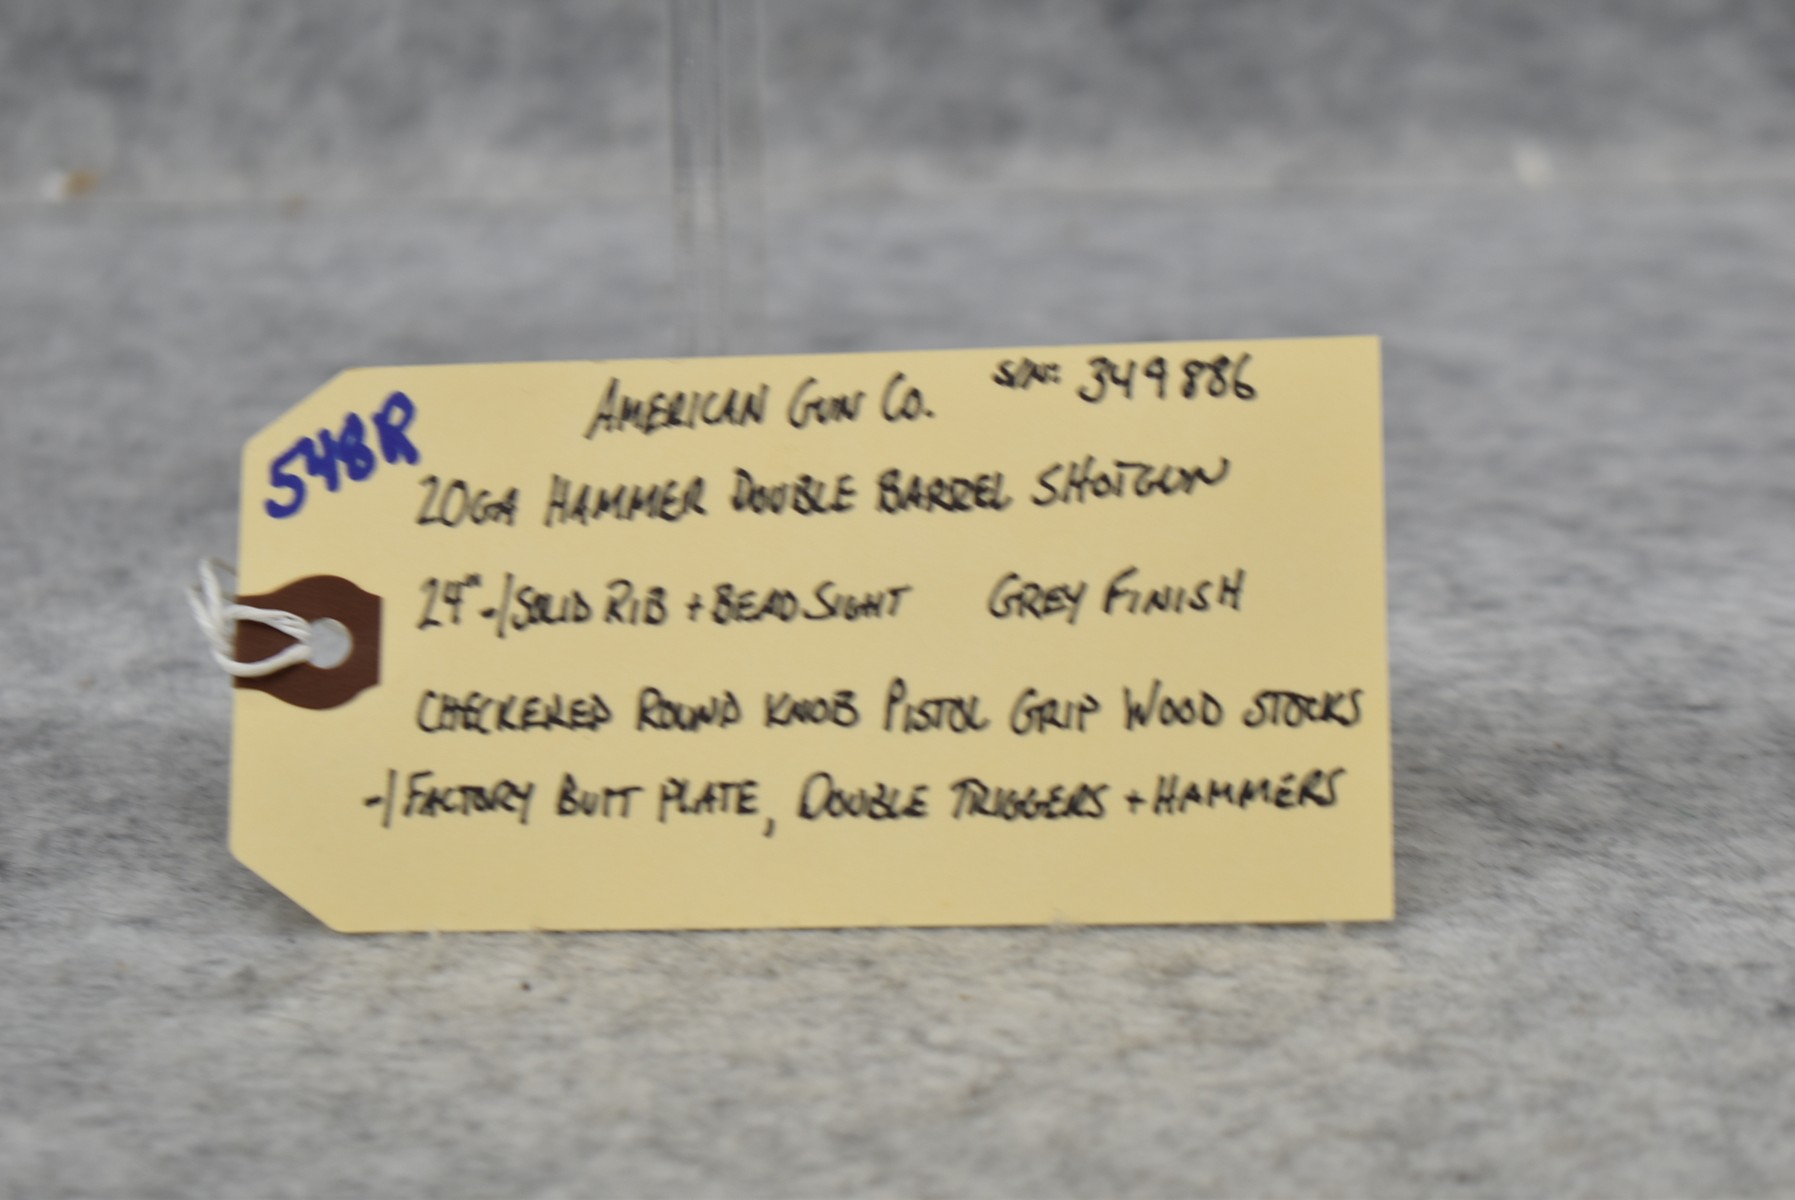 548R
AMERICAN GUN CO. S/N: 349886
20GA HAMMER DOUBLE BARREL SHOTGUN
24" -/SOLID RIB + BEAD SIGHT GREY FINISH
CHECKERED ROUND KNOB PISTOL GRIP WOOD STOCKS
-/FACTORY BUTT PLATE, DOUBLE TRIGGERS + HAMMERS